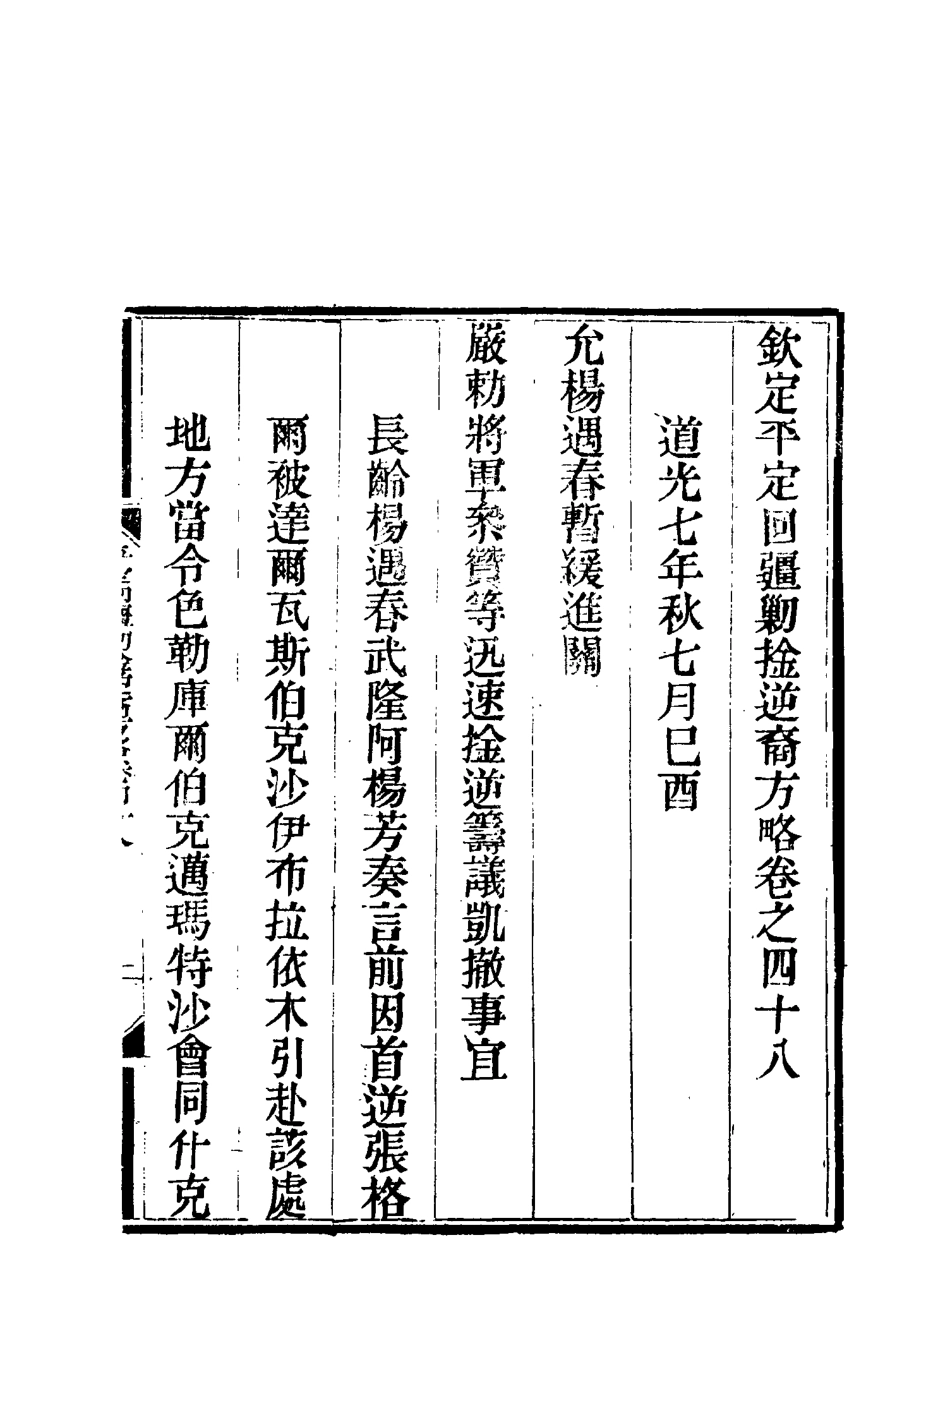 欽定平定回疆勦捦逆裔方略卷之四十八
道光七年秋七月巳酉
允楊遇春暫緩進關
嚴勅將軍叅贊等迅速捦逆籌議凱撤事宜
長齡楊遇春武隆阿楊芳奏言前因首逆張格
爾被達爾瓦斯伯克沙伊布拉依木引赴該處
地方當令色勒庫爾伯克邁瑪特沙會同什克